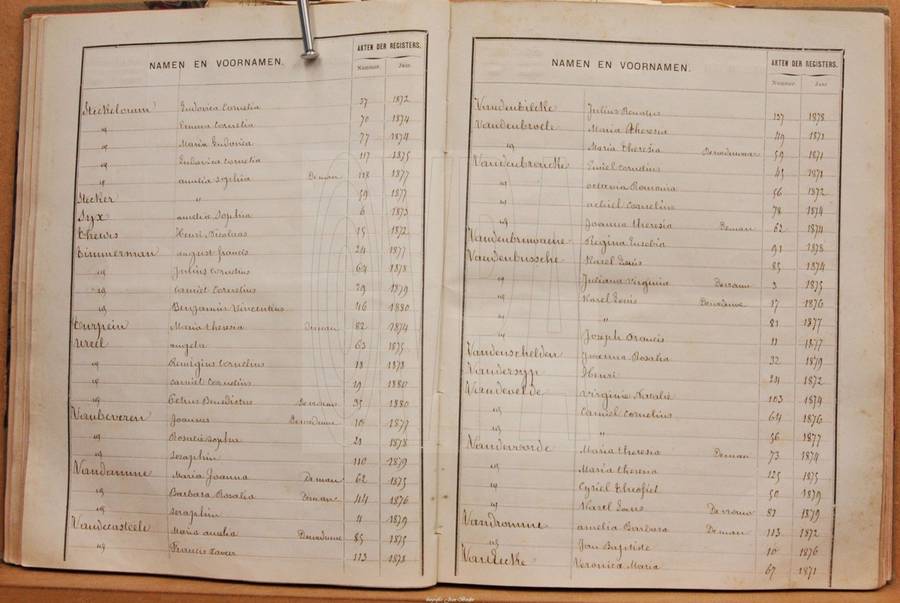 NAMEN EN VOORNAMEN. AKTEN DER REGISTERS.
Nummer. Jaar.
Steckelorum Ludovica Cornelia 37 1872
id Emma Cornelia 70 1874
id Maria Ludovica 77 1874
id Ludovica Cornelia 117 1875
id Amelia Sophia Deman 118 1877
Stecker " 59 1877
Syx Amelia Sophia 6 1873
Thewis Henri Nicolaas 15 1872
Timmerman August Francis 24 1877
id Julius Cornelius 64 1878
id Camiel Cornelius 29 1879
id Benjamin Vincentius 46 1880
Maria Theresia Deman 82 1874
Angela 63 1875
id Remigius Cornelius 18 1878
id Camiel Cornelius 19 1880
id Petrus Benedictus 35 1880
Vanbeveren Joannes 10 1877
id Rosalie Sophie 21 1878
id Seraphin 110 1879
Vandamme Maria Joanna Deman 62 1875
id Barbara Rosalia Deman 44 1876
id Seraphin 4 1879
Vandecasteele Maria Amelia 85 1875
id Francis Xavier 113 1878
NAMEN EN VOORNAMEN. AKTEN DER REGISTERS.
Nummer. Jaar.
Vandenbilcke Julius Renatus 137 1878
Vandenbroele Maria Theresia 49 1871
id Maria Theresia 59 1871
Vandenbroucke Emiel Cornelius 45 1871
id Octavia Romania 56 1872
id Achiel Cornelius 78 1874
id Joanna Theresia Deman 62 1874
Vandenbruwaene Regina Eusebia 91 1878
Vandenbussche Karel Louis 85 1874
id Juliana Virginia 3 1875
id Karel Louis 17 1876
id " 21 1877
id Joseph Francis 11 1877
Vandenschelden Rosalia 32 1879
Vandersyp Henri 24 1872
Vandevelde Virginie Natalie 103 1874
id Camiel Cornelius 64 1876
id " 36 1877
Vandevoorde Maria Theresia Deman 73 1874
id Maria Theresia 125 1875
id Cyriel Theofiel 50 1879
id Karel Louis 87 1879
Vandromme Amelia Barbara Deman 113 1872
id Jan Baptiste 10 1876
Veronica Maria 67 1871